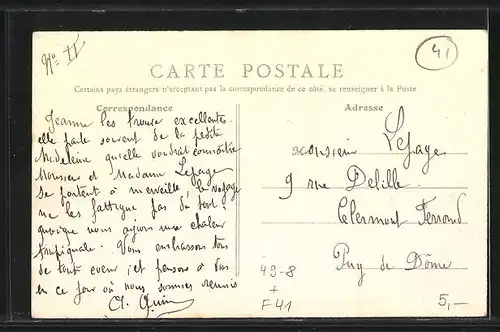 N° II
41
CARTE POSTALE
Certains pays étrangers n'acceptant pas la correspondance de ce côté, se renseigner à la Poste
Correspondance
Adresse
Jeanne les trouve excellentes.
elle parle souvent de la petite
Madeleine qu'elle voudrait connaitre
Monsieur et Madame Lepage
se portent à merveille, le voyage
ne les fattigue pas du tout
quoique nous ayions une chaleur
tropiquale. Vous embrassons tous
de tout coeur et pensons à vous
en ce jour où nous sommes réunis
Monsieur Lepage
9 rue Delille
Clermont Ferrand
Puy de Dôme
49-8
+
F 41
5,-